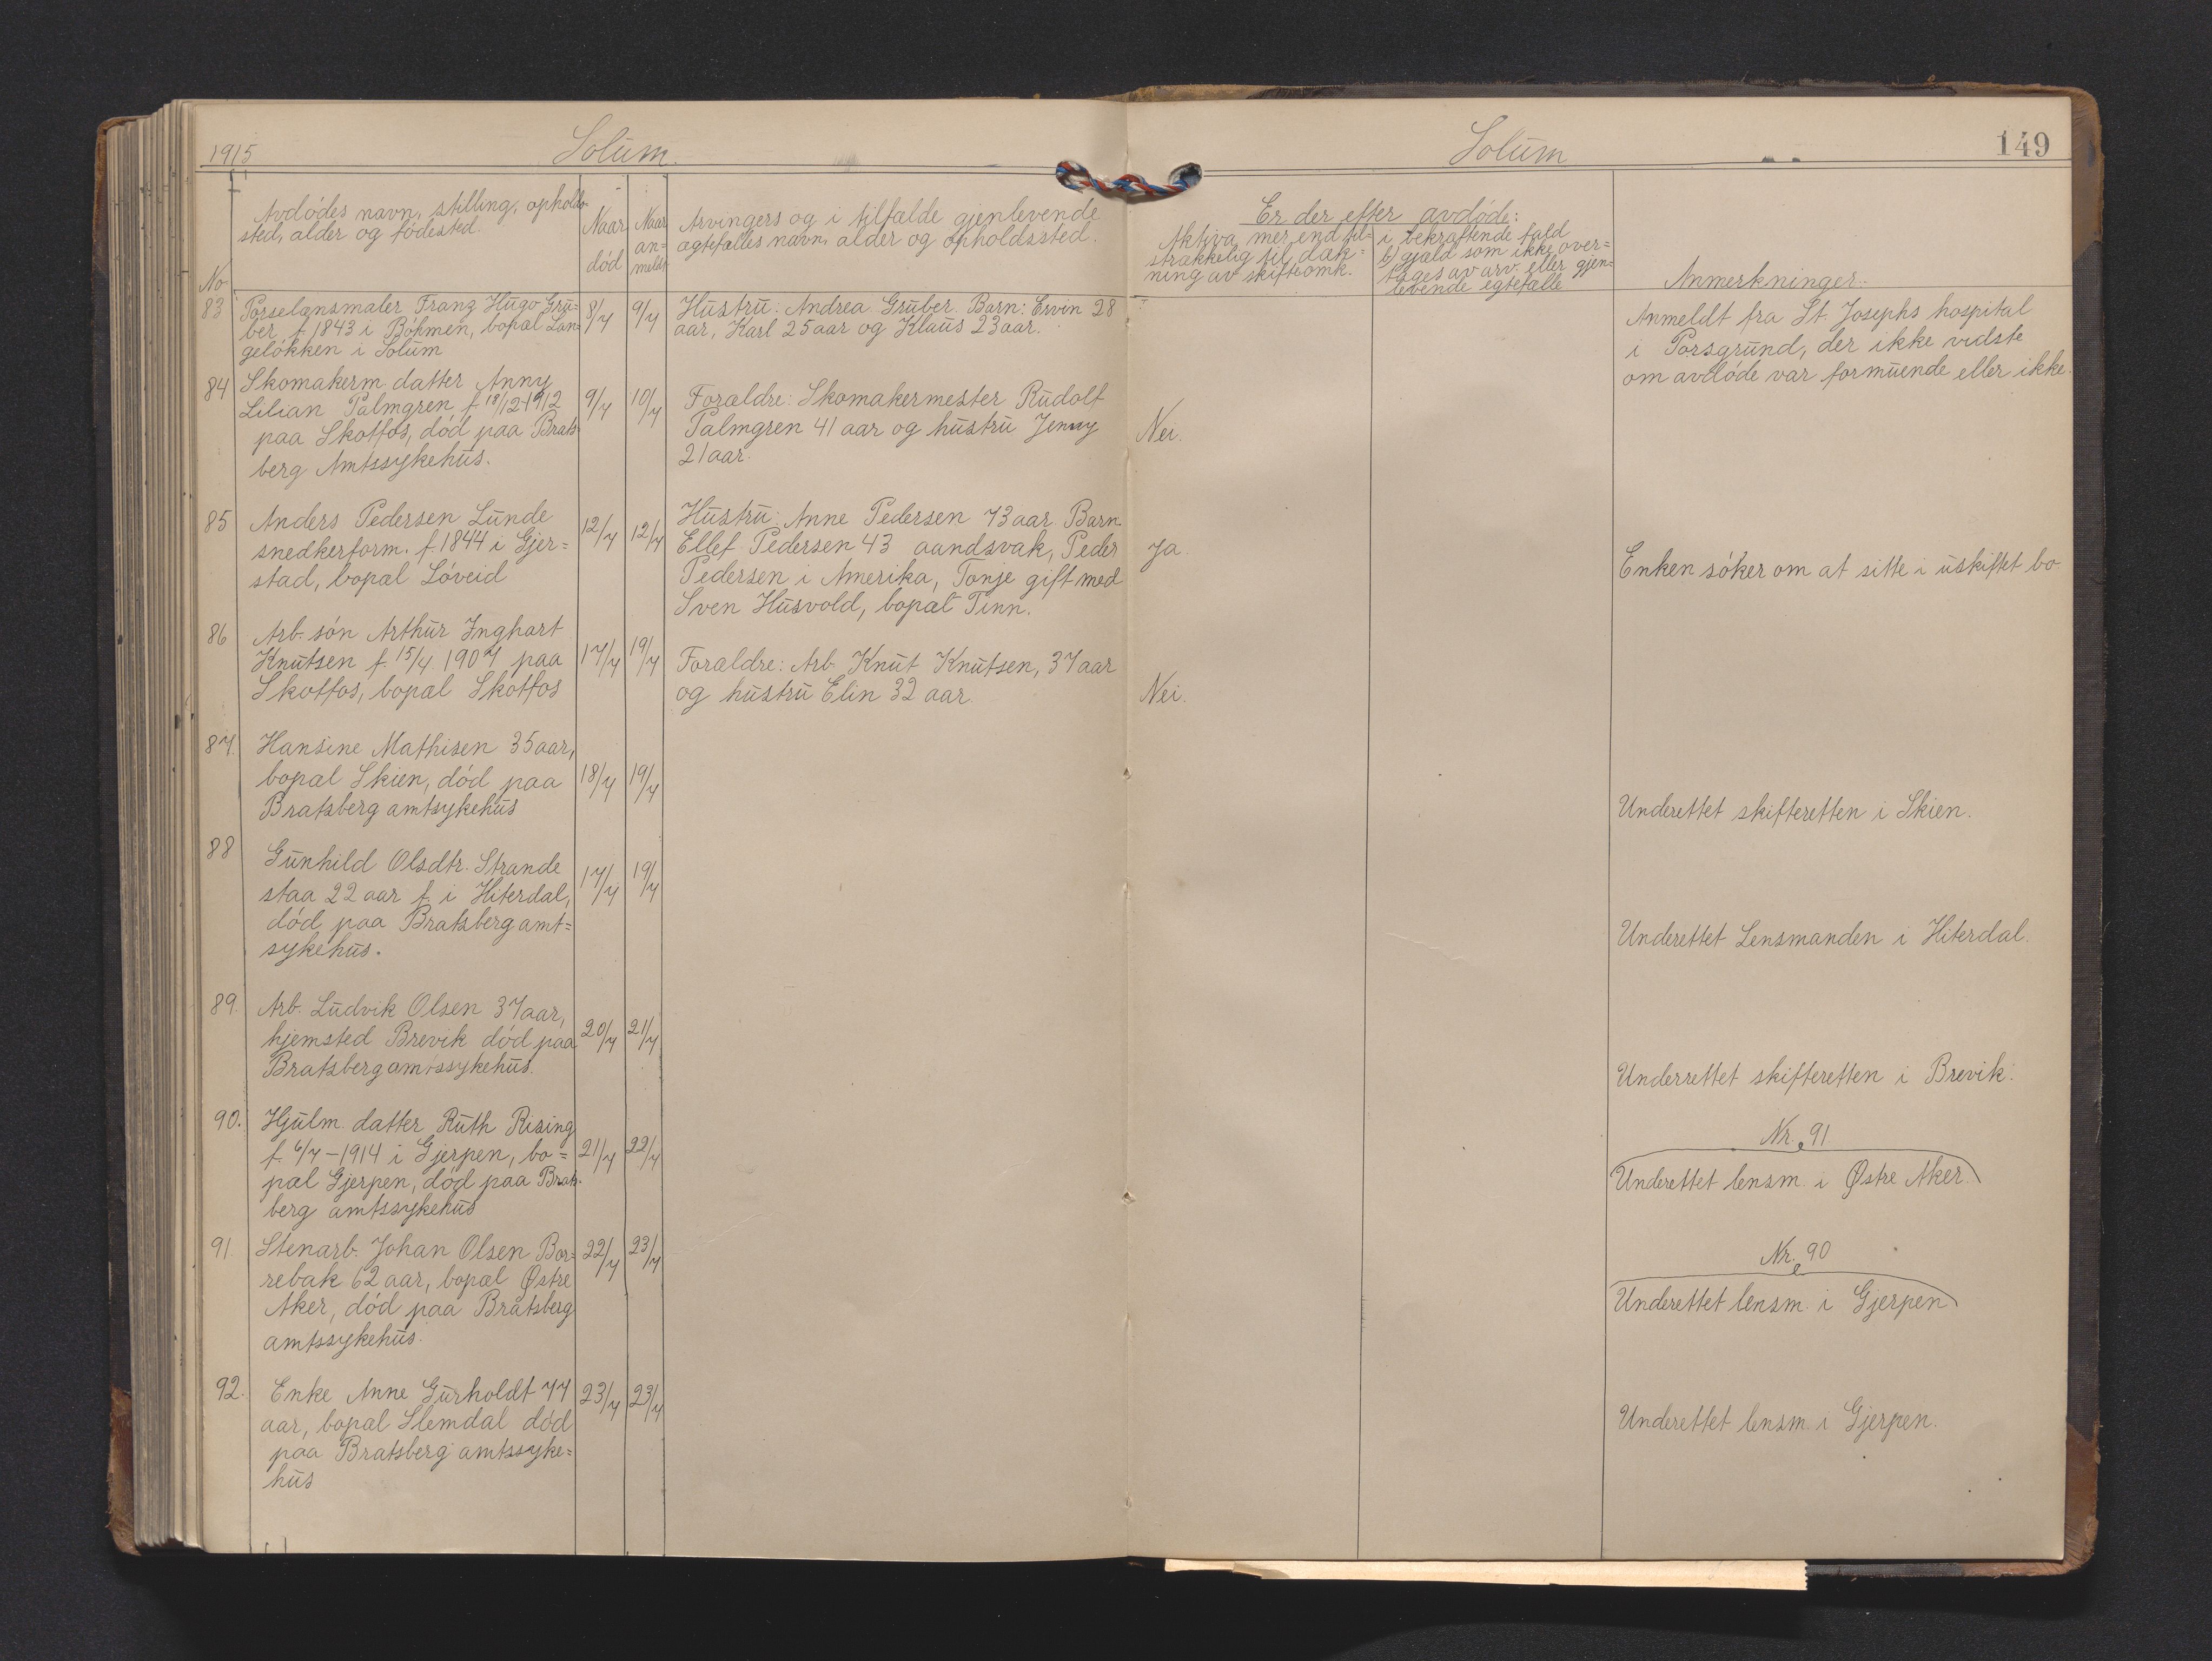 1915
Solum.
Solum
149
No
Avdødes navn, stilling, opholds-
sted, alder og fødested.
Naar
død
Naar
an=
meldt
Arvingers og i tilfælde gjenlevende
ægtefælles navn, alder og opholdssted.
Er der efter avdøde:
Aktiva mer end til=
strækkelig til dæk=
ning av skifteomk.
i bekræftende fald
b) gjæld som ikke over=
tages av arv. eller gjen=
levende egtefælle
Anmerkninger.
83
Porselænsmaler Franz Hugo Gru=
ber, f. 1843 i Bøhmen, bopæl Lan=
geløkken i Solum
8/7
9/7
Hustru: Andrea Gruber. Barn: Ervin 28
aar, Karl 25 aar og Klaus 23 aar.
Anmeldt fra St. Josephs hospital
i Porsgrund, der ikke vidste
om avdøde var formuende eller ikke.
84
Skomakerm. datter Anny
Lilian Palmgren f. 18/12-1912
paa Skotfos, død paa Brats-
berg Amtssykehus.
9/7
10/7
Forældre: Skomakermester Rudolf
Palmgren 41 aar og hustru Jenny
21 aar.
Nei.
85
Anders Pedersen Lunde
snedkerform. f. 1844 i Gjer=
stad, bopæl Løveid
12/7
12/7
Hustru: Anne Pedersen 73 aar. Barn
Ellef Pedersen 43 aandsvak, Peder
Pedersen i Amerika, Tonje gift med
Sven Husvold, bopæl Tinn.
Ja
Enken søker om at sitte i uskiftet bo
86
Arb. søn Arthur Inghart
Knutsen f. 15/4. 1907 paa
Skotfos, bopæl Skotfos
17/7
19/7
Forældre: Arb. Knut Knutsen, 37 aar
og hustru Elin 32 aar.
Nei.
87.
Hansine Mathisen 35 aar,
bopæl Skien, død paa
Bratsberg amtsykehus
18/7
19/7
Underettet skifteretten i Skien.
88
Gunhild Olsdtr. Strande
staa 22 aar f. i Hiterdal,
død paa Bratsberg amt=
sykehus.
17/7
19/7
Underettet Lensmanden i Hiterdal.
89.
Arb. Ludvik Olsen 37 aar,
hjemsted Brevik død paa
Bratsberg amtssykehus.
20/7
21/7
Underrettet skifteretten i Brevik.
90.
Hjulm. datter Ruth Rising
f. 6/7-1914 i Gjerpen, bo=
pæl Gjerpen, død paa Brats-
berg amtssykehus
21/7
22/7
Nr. 91
Underettet lensm. i Østre Aker.
91.
Stenarb. Johan Olsen Bor=
rebæk 62 aar, bopæl Østre
Aker, død paa Bratsberg
amtssykehus.
22/7
23/7
Nr. 90
Underettet lensm. i Gjerpen
92.
Enke Anne Gurholdt 77
aar, bopæl Slemdal død
paa Bratsberg amtssyke=
hus
23/7
23/7
Underettet lensm. i Gjerpen.